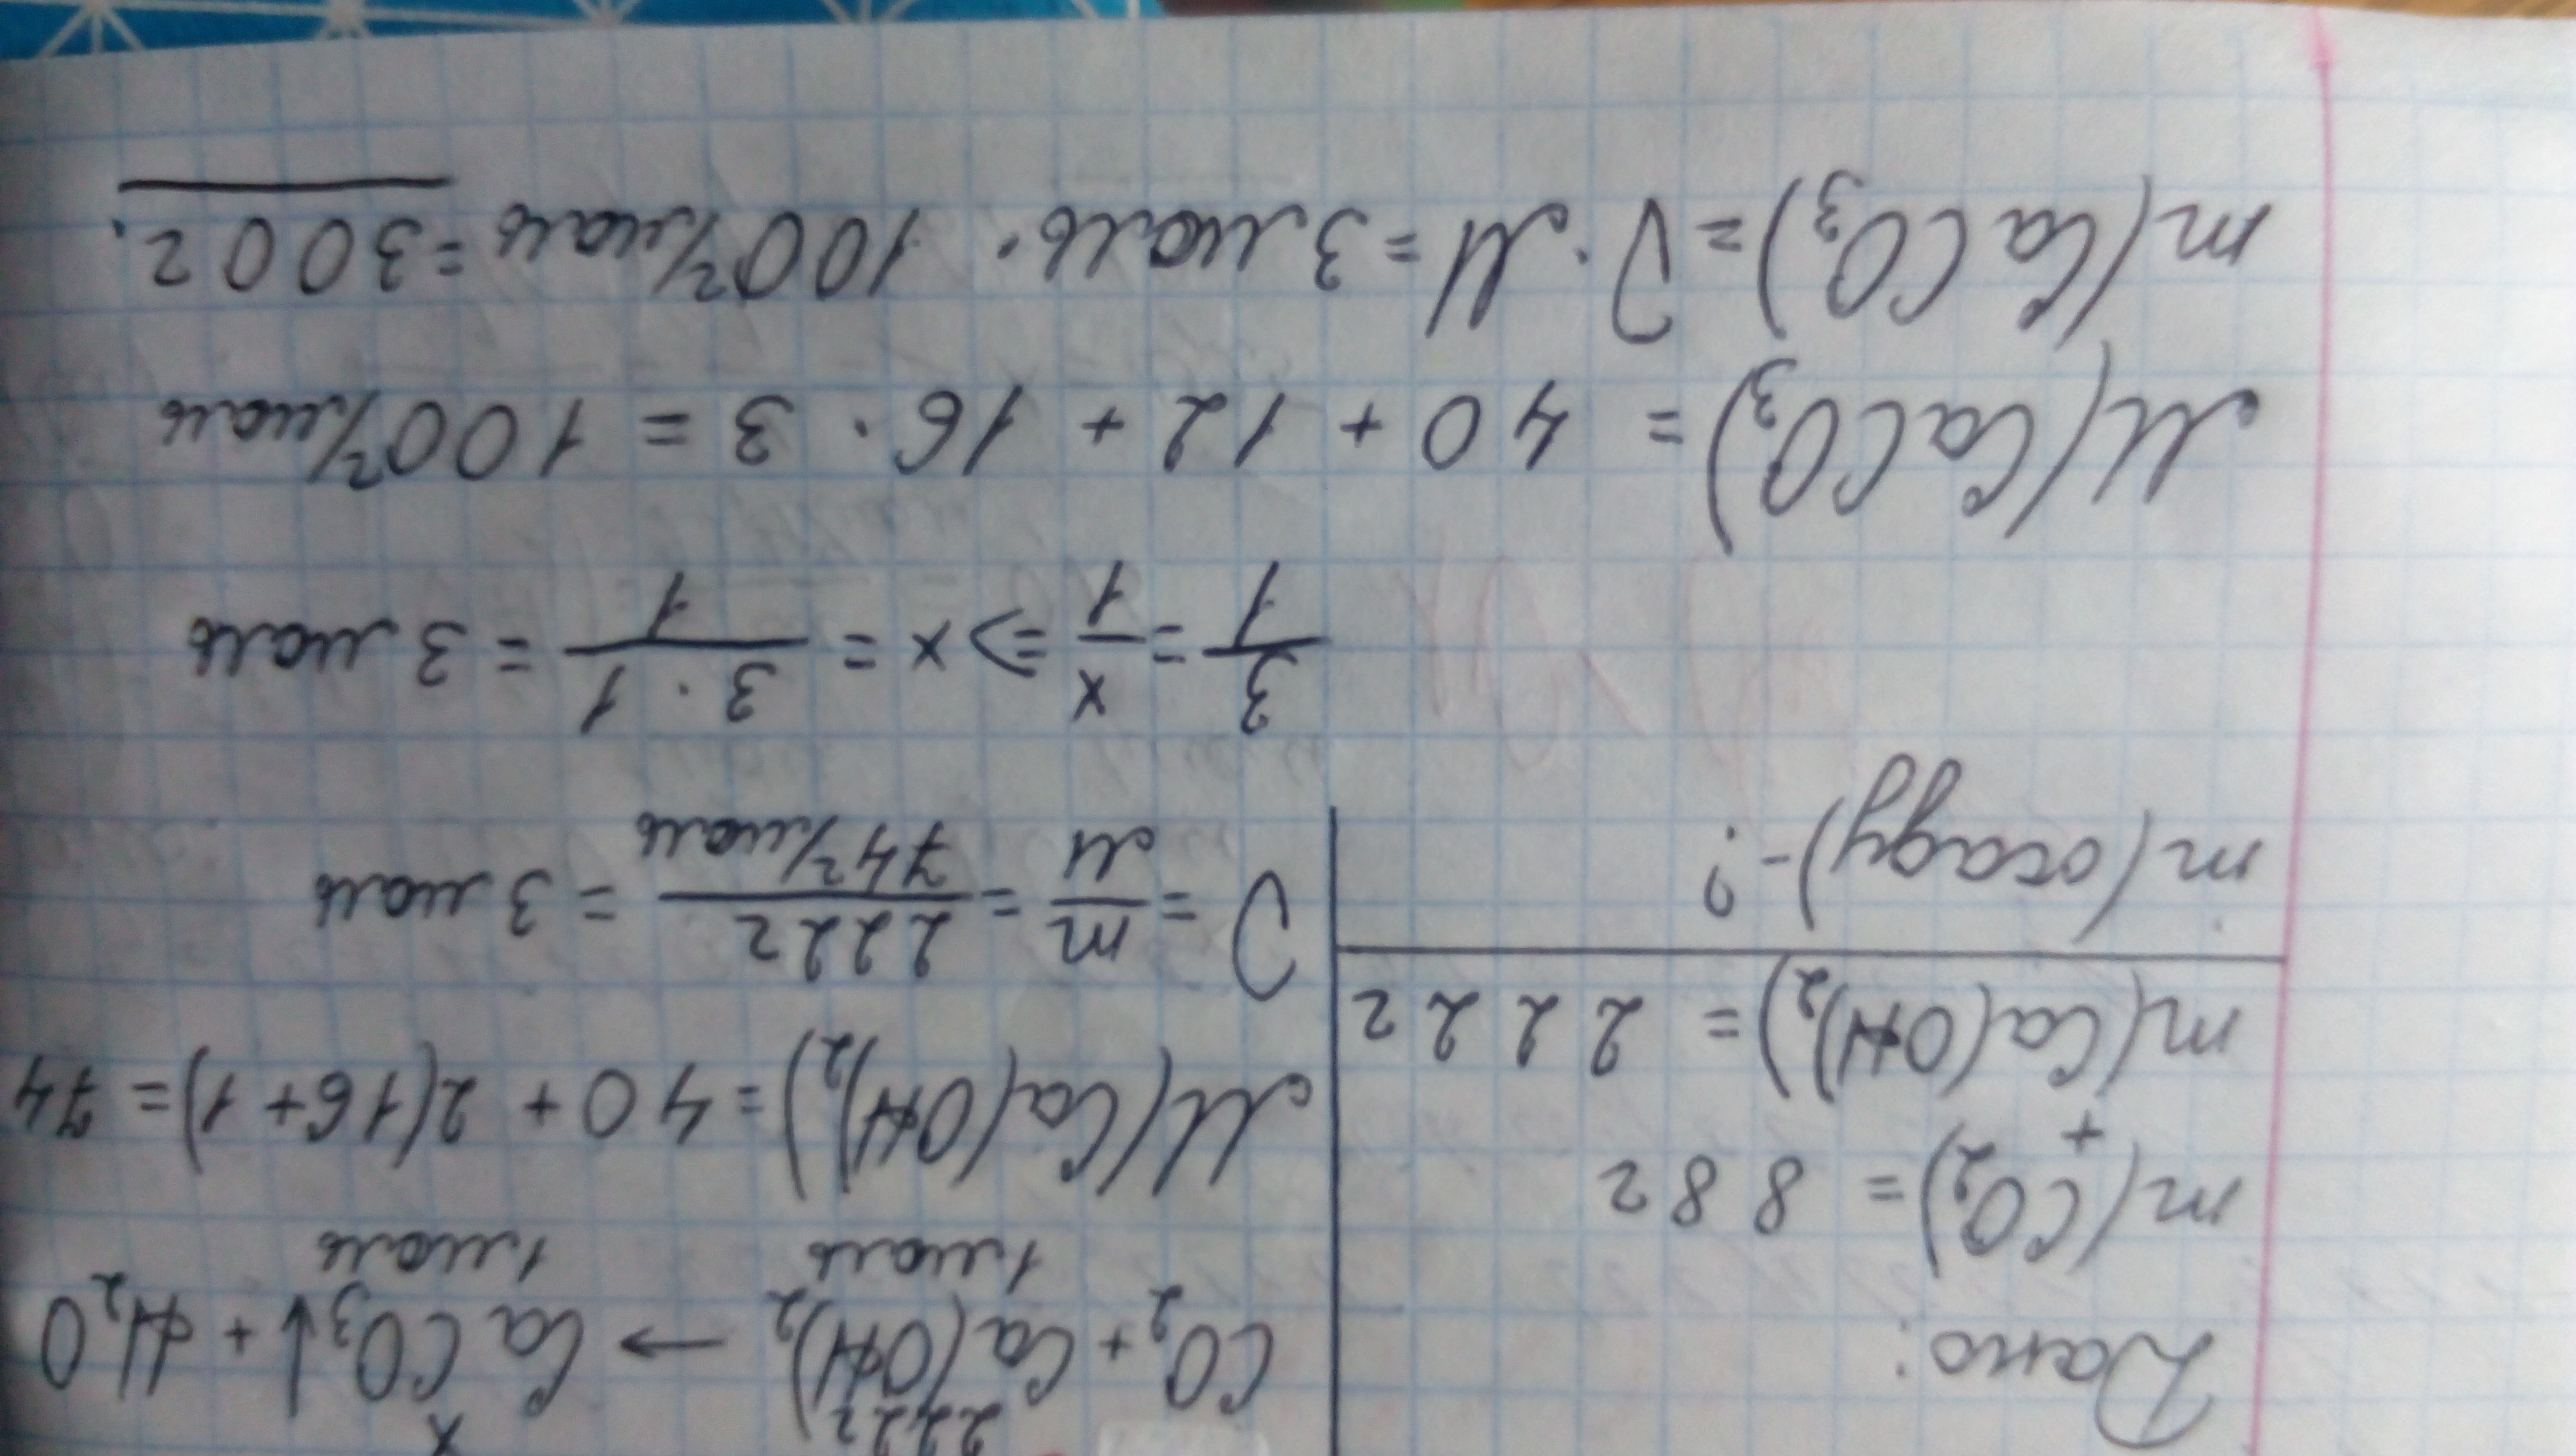 Дано:
m(CO₂) = 88г
+
m(Ca(OH)₂) = 222г
m(осаду) - ?
222г x
CO₂ + Ca(OH)₂ → CaCO₃↓ + H₂O
1 моль 1 моль
M(Ca(OH)₂) = 40 + 2(16+1) = 74
ν = m/M = 222г/74г/моль = 3 моль
3/1 = x/1 ⇒ x = 3·1/1 = 3 моль
M(CaCO₃) = 40 + 12 + 16·3 = 100г/моль
m(CaCO₃) = ν·M = 3 моль · 100г/моль = 300г.